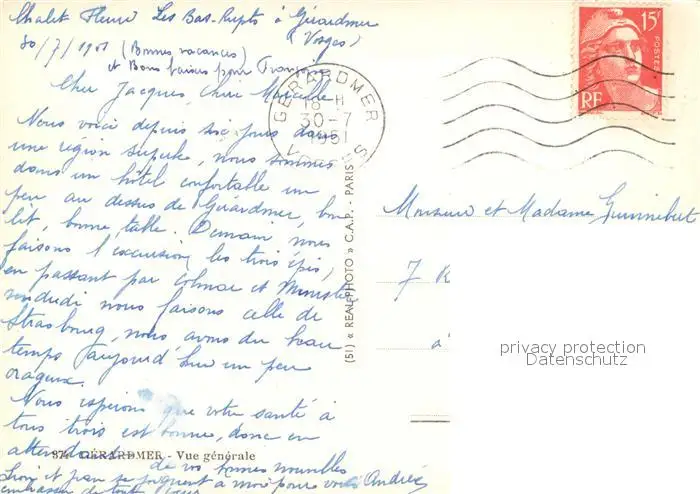 Chalet Fleuri Les Bas-Rupts à Gérardmer
(Vosges)
30/7/1951 (Bonnes vacances)
et Bons baisers pour
Cher Jacques, chère Marcelle
Nous voici depuis six jours dans
une région superbe, nous sommes
dans un hôtel confortable un
peu au dessus de Gérardmer, bon
lit, bonne table. Demain, nous
faisons l'excursion, les trois épis,
en passant par Colmar et Munster
vendredi nous faisons celle de
Strasbourg, nous avons du beau
temps aujourd'hui un peu
orageux.
Nous espérons que votre santé à
tous trois est bonne, donc en
attendant de vos bonnes nouvelles
et se joignent à moi pour vous
embrasser de tout
Andrée
874 GÉRARDMER - Vue générale
GÉRARDMER
18 H
30-7
1951
VOSGES
(51) « REAL-PHOTO » C.A.P. - PARIS
15F
POSTES
RF
Monsieur et Madame
7 R
à
privacy protection
Datenschutz